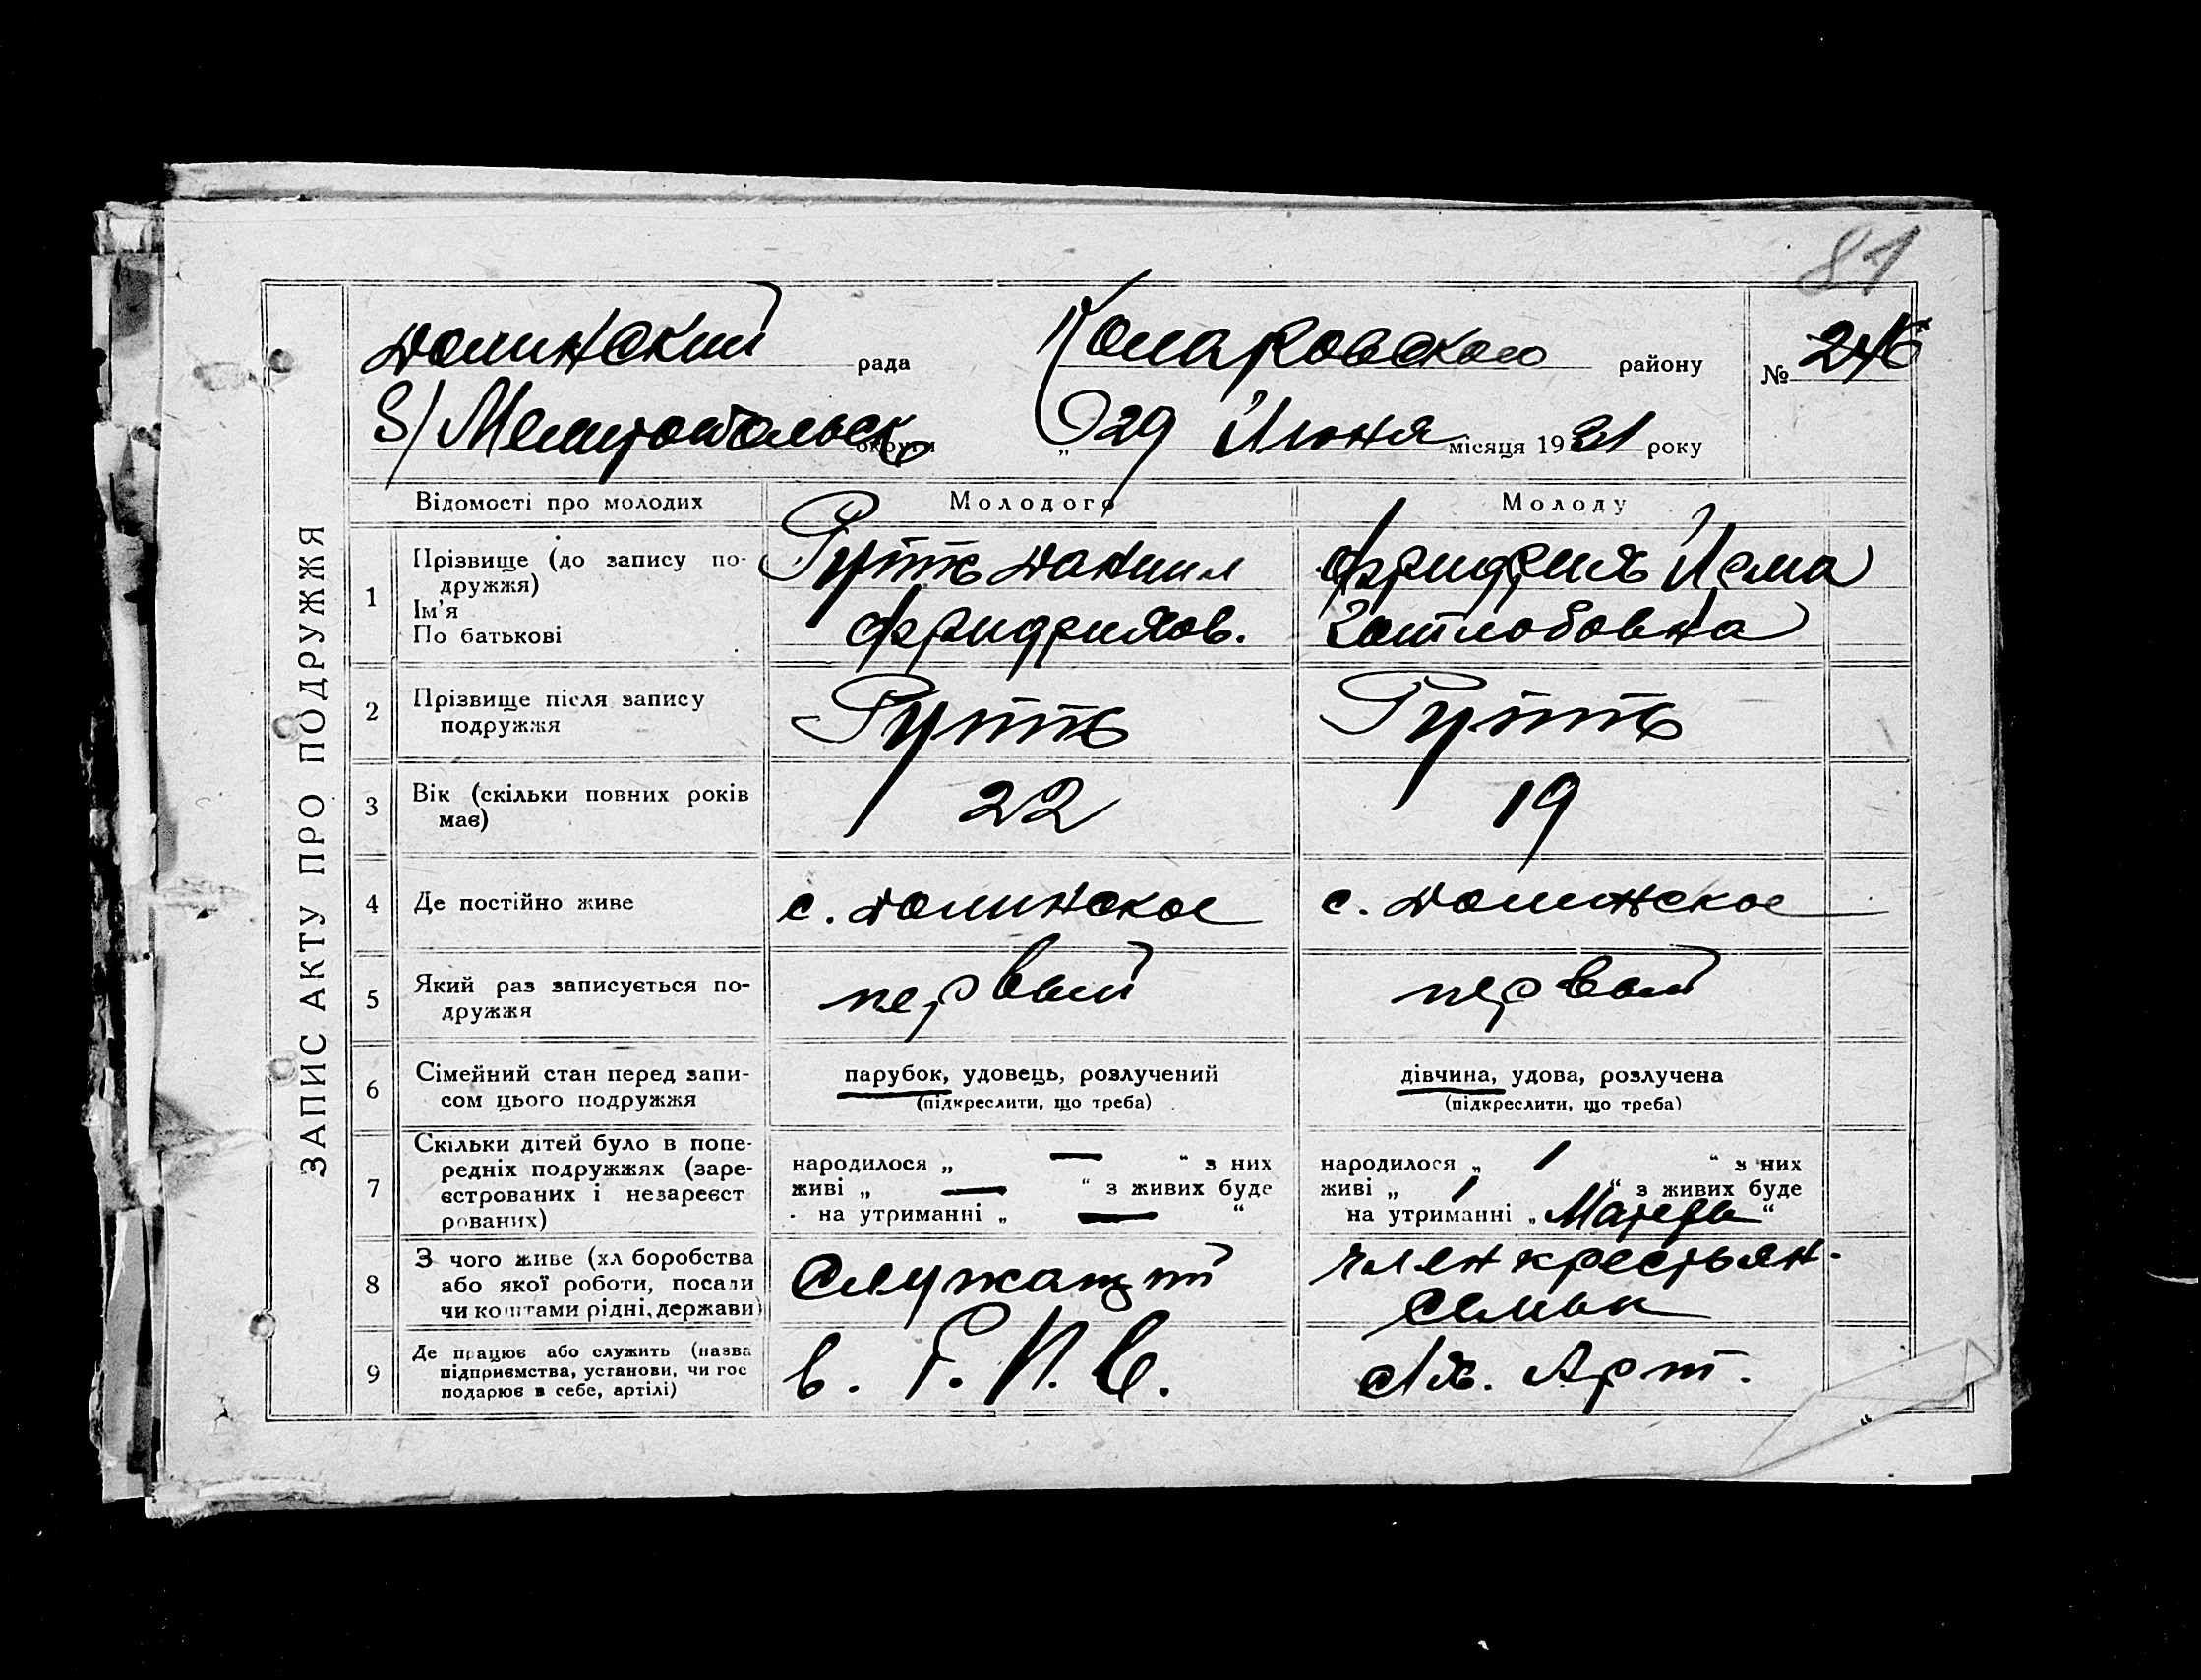 81
Долинский рада Комаровского району № 246
б/Мелитопольск округи „ 29 Июня місяця 1931 року
ЗАПИС АКТУ ПРО ПОДРУЖЖЯ
Відомості про молодих Молодого Молоду
1 Прізвище (до запису по-
дружжя)
Ім'я
По батькові
Рутть Даниил
Фридрихов.
Фридрих Ирма
Готлобовна
2 Прізвище після запису
подружжя
Рутть Рутть
3 Вік (скільки повних років
має)
22 19
4 Де постійно живе с. Долинское с. Долинское
5 Який раз записується по-
дружжя
первый первый
6 Сімейний стан перед запи-
сом цього подружжя
парубок, удовець, розлучений
(підкреслити, що треба)
дівчина, удова, розлучена
(підкреслити, що треба)
7 Скільки дітей було в попе-
редніх подружжях (заре-
єстрованих і незареєст
рованих)
народилося „ — “ з них
живі „ — “ з живих буде
на утриманні „ — “
народилося „ 1 “ з них
живі „ 1 “ з живих буде
на утриманні „ Матеры “
8 З чого живе (хліборобства
або якої роботи, посади
чи коштами рідні, держави)
Служащий
член крестьян-
семьи
9 Де працює або служить (назва
підприємства, установи, чи гос
подарює в себе, артілі)
в. Г. П. С. Арт.